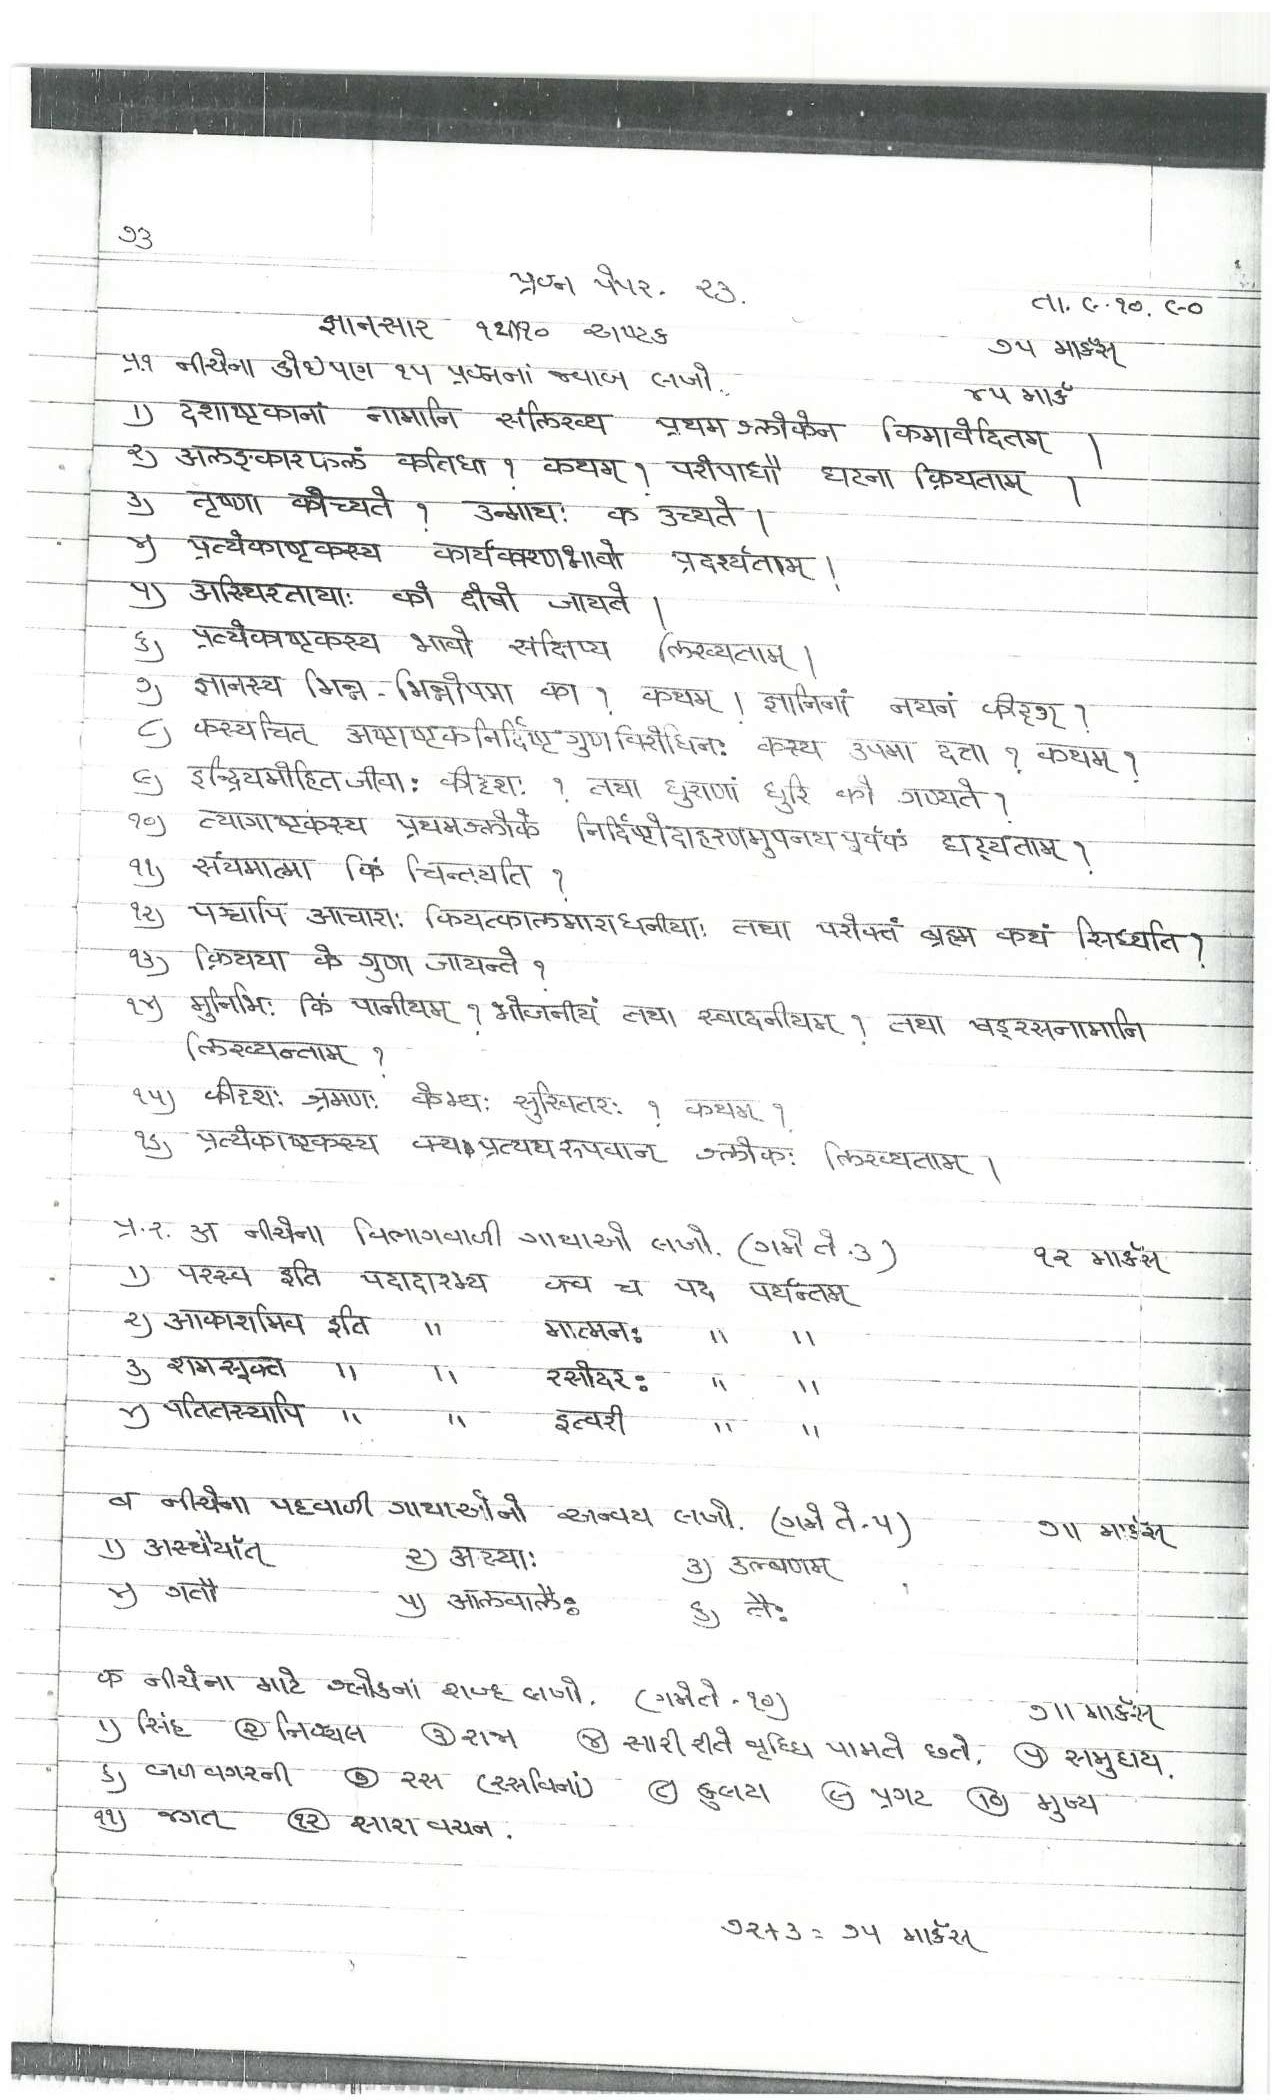 ૭૩
પ્રશ્ન પેપર. ૨૩.
તા. ૯.૧૦.૯૦
જ્ઞાનસાર ૧થી૧૦ અષ્ટક
૭૫ માર્કસ્
પ્ર.૧ નીચેના કોઈપણ ૧૫ પ્રશ્નનાં જવાબ લખો.
૪૫ માર્ક
૧) दशाष्टकानां नामानि संलिख्य प्रथमश्लोकेन किमावेदितम् ।
૨) अलङ्कारफलं कतिधा ? कथम् ? परोपाधौ घटना क्रियताम् ।
૩) तृष्णा कोच्यते ? उन्माथः क उच्यते ।
૪) प्रत्येकाष्टकस्य कार्यकारणभावो प्रदर्श्यताम् !
૫) अस्थिरतायाः को दोषो जायते ।
૬) प्रत्येकाष्टकस्य भावो संक्षिप्य लिख्यताम् ।
૭) ज्ञानस्य भिन्न-भिन्नोपमा का ? कथम् । ज्ञानिनां नयनं कीदृश् ?
૮) कस्यचित् अष्टाष्टकनिर्दिष्टगुणविरोधिनः कस्य उपमा दत्ता ? कथम् ?
૯) इन्द्रियमोहितजीवाः कीदृशः ? तथा धुराणां धुरि को गण्यते ?
૧૦) त्यागाष्टकस्य प्रथमश्लोके निर्दिष्टोदाहरणमुपनयपूर्वकं घट्यताम् ?
૧૧) संयमात्मा किं चिन्तयति ?
૧૨) पञ्चापि आचाराः कियत्कालमाराधनीयाः तथा परोक्तं ब्रह्म कथं सिध्यति ?
૧૩) क्रियया के गुणा जायन्ते ?
૧૪) मुनिभिः किं पानीयम् ? भोजनीयं तथा स्वादनीयम् ? तथा षड्रसनामानि
लिख्यन्ताम् ?
૧૫) कीदृशः श्रमणः केभ्यः सुखितरः ? कथम् ?
૧૬) प्रत्येकाष्टकस्य क्यप्प्रत्ययरूपवान् श्लोकः लिख्यताम् ।
પ્ર.૨. અ નીચેના વિભાગવાળી ગાથાઓ લખો. (ગમે તે.૩)
૧૨ માર્કસ્
૧) परस्व इति पदादारभ्य क्व च पद पर्यन्तम्
૨) आकाशमिव इति " मात्मनः " "
૩) शमसूक्त " " रसोदरः " "
૪) पतितस्यापि " " इत्वरी " "
બ નીચેના પદવાળી ગાથાઓનો અન્વય લખો. (ગમે તે-૫)
૭ાા માર્કસ્
૧) अस्थैर्यात् ૨) अस्याः ૩) उल्बणम्
૪) गतौ ૫) आलवालैः ૬) तैः
ક નીચેના માટે શ્લોકનાં શબ્દ લખો. (ગમેતે-૧૦)
૭ાા માર્કસ્
૧) સિંહ ૨) નિશ્ચલ ૩) રાજા ૪) સારી રીતે વૃધ્ધિ પામતે છતે. ૫) સમુદાય.
૬) બળ વગરની ૭) રસ (રસવિનાં) ૮) કુલટા ૯) પ્રગટ ૧૦) મુખ્ય
૧૧) જગત્ ૧૨) સારા વચન.
૭૨+૩ = ૭૫ માર્કસ્